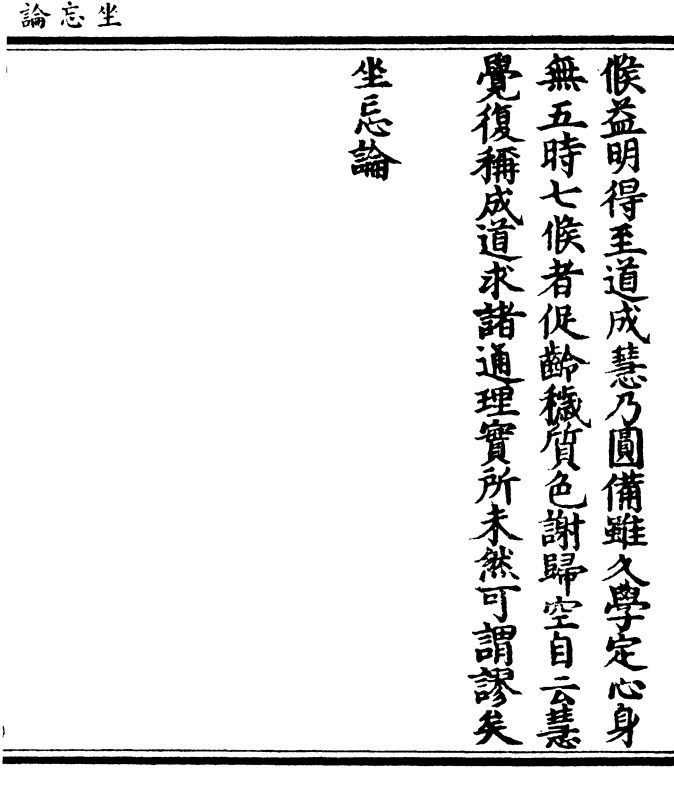 坐忘論
候益明得至道成慧乃圓備雖久學定心身
無五時七候者促齡穢質色謝歸空自云慧
覺復稱成道求諸通理實所未然可謂謬矣
坐忘論